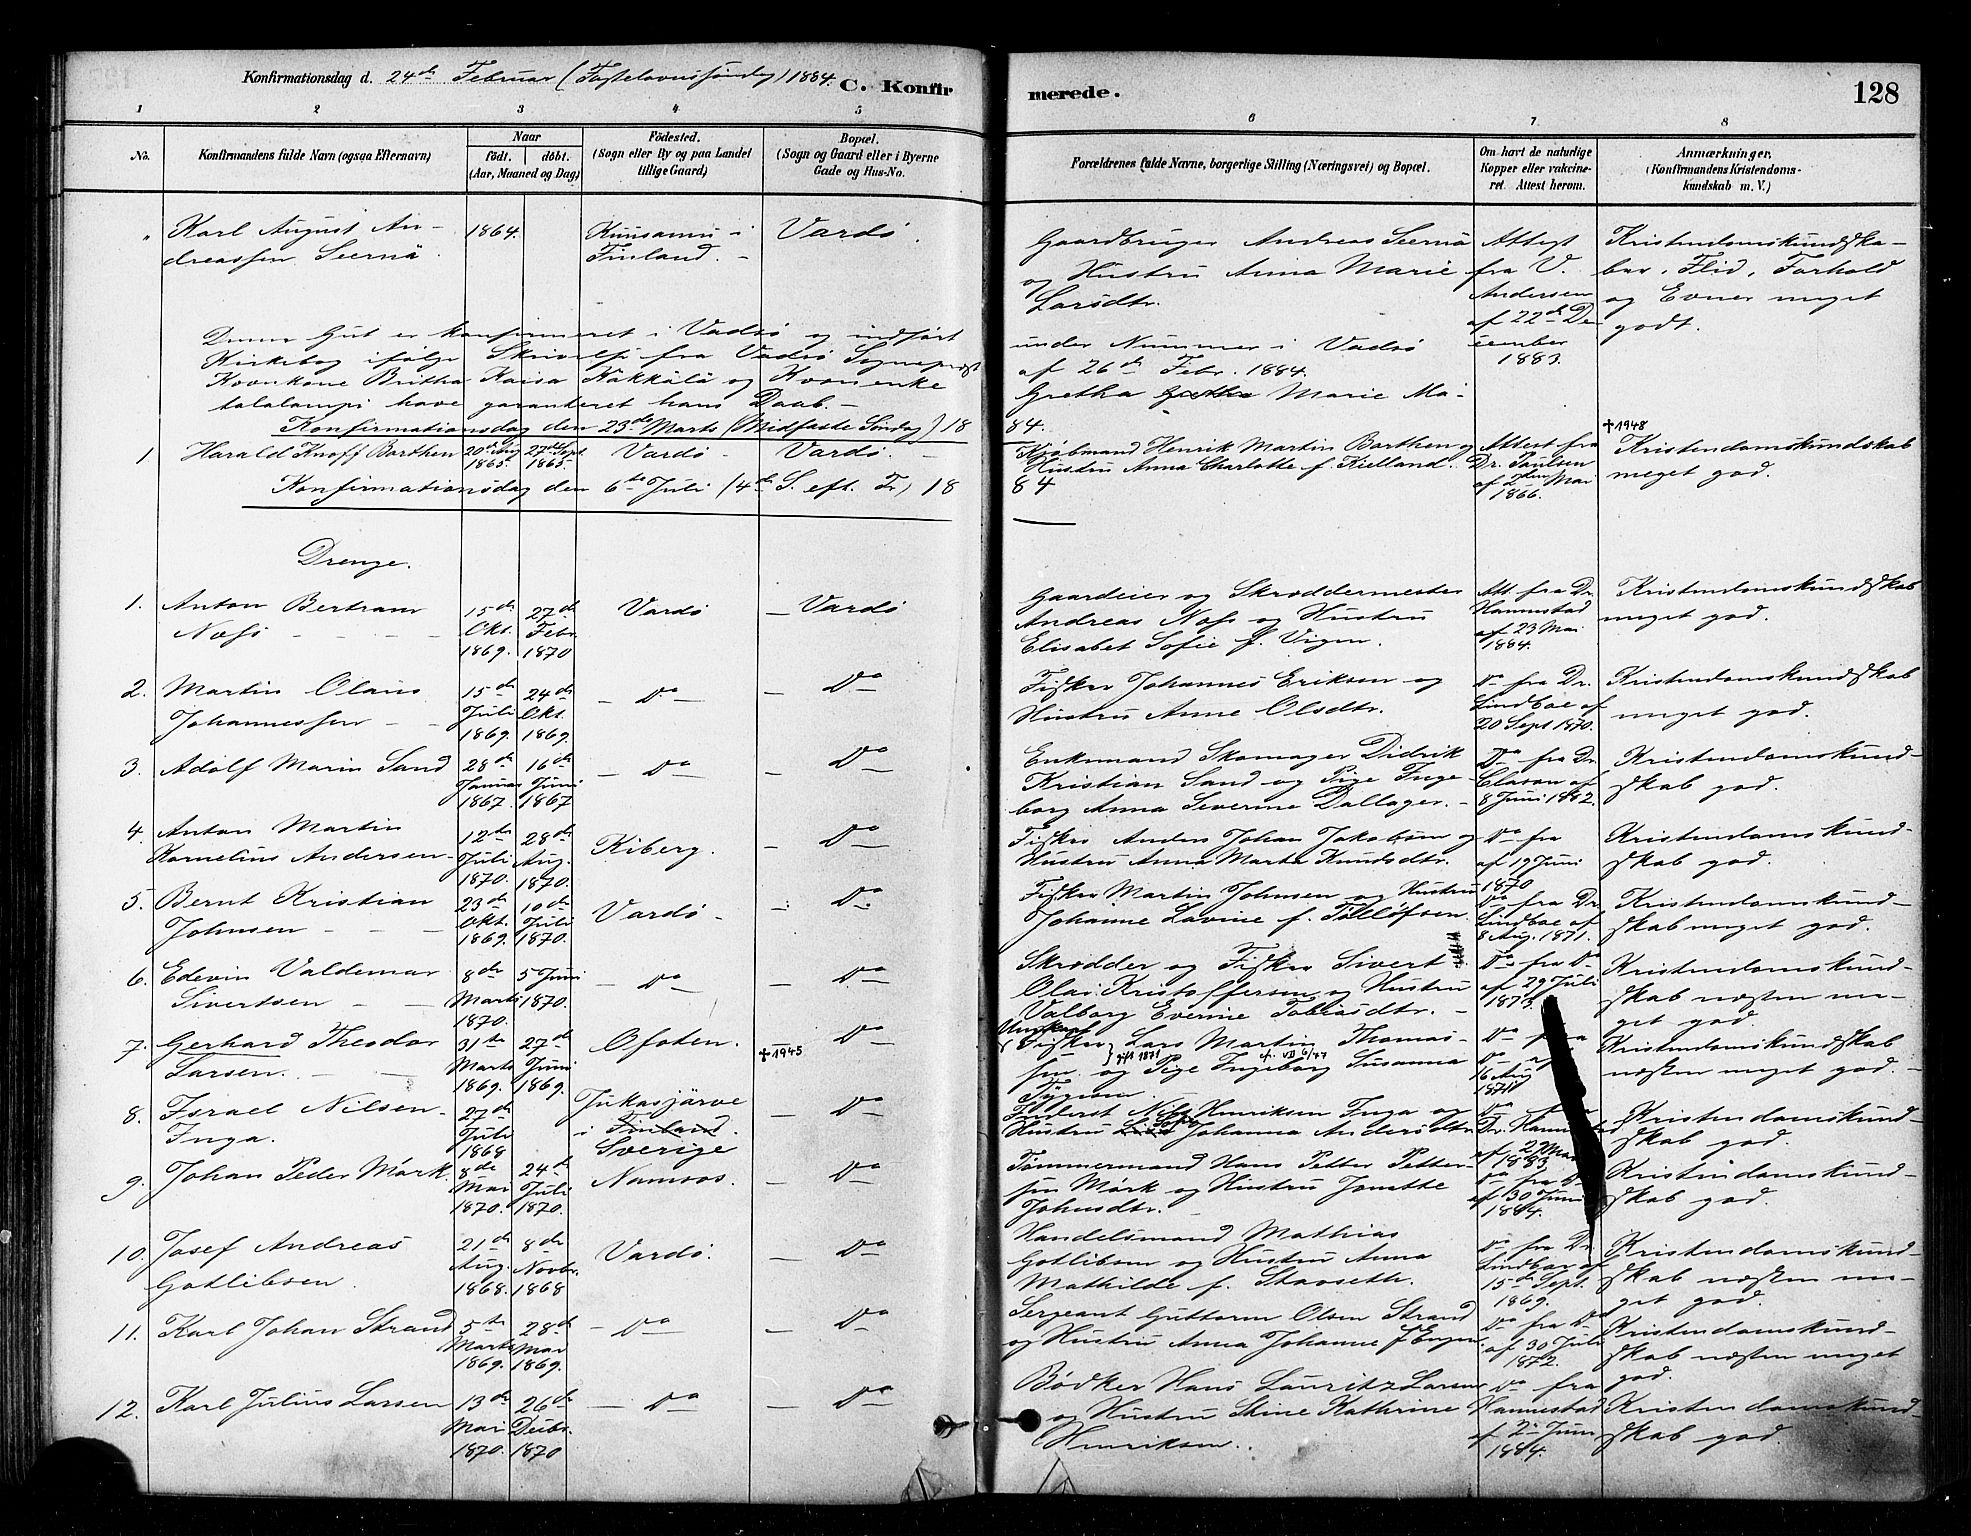 Konfirmationsdag d. 24de Februar (Fastelavnssöndag) 1884. C. Konfir
merede. 128
1 2 3 4 5
6 7 8
No.
Konfirmandens fulde Navn (ogsaa Efternavn)
Naar
födt. döbt.
(Aar, Maaned og Dag)
Födested.
(Sogn eller By og paa Landet
tillige Gaard)
Bopæl.
(Sogn og Gaard eller i Byerne
Gade og Hus-No.
Forældrenes fulde Navne, borgerlige Stilling (Næringsvei) og Bopæl.
Om havt de naturlige
Kopper eller vakcine-
ret. Attest herom.
Anmærkninger.
(Konfirmandens Kristendoms-
kundskab m. V.)
" Karl August An-
dreassen Seernä.
1864.
Kuusamu i
Finland. -
Vardö.
Gaardbruger Andreas Seernä
og Hustru Anna Marie
Larsdtr.
Attest
fra V.
Andersen
af 22de De-
cember
1883.
Kristendomskundska-
ber, Flid, Forhold
og Evner meget
godt.
Denne Gut er konfirmeret i Vadsö og indfört
under Nummer i Vadsö
Kirkebog ifölge Skrivelse fra Vadsö Sogneprest
af 26de Febr. 1884.
Kvenkone Britha Kaisa Kokkälä og Kvenenke
Gretha Marie Ma-
talalampi have garanteret hans Daab. -
Konfirmationsdag den 23de Marts (Midfaste Söndag) 18
84.
1 Harald Knoff Barthen
20de Aug 1865.
27de Sept. 1865.
Vardö -
Vardö. -
Kjöbmand Henrik Martin Barthen og
Hustru Anna Charlotte f. Kielland.
Attest fra
Dr. Paulsen
af 2den Mai
1866.
✝1948
Kristendomskundskab
meget god.
Konfirmationsdag den 6te Juli (4de S. eft. Tr.) 18
84
Drenge.
1. Anton Bertram
Næss - - -
15de
Okt.
1869.
27de
Febr.
1870
Vardö
- Vardö
Gaardeier og Skræddermester
Andreas Næss og Hustru
Elisabet Sofie f. Vigen.
Att. fra Dr.
Hannestad
af 23 Mai
1884.
Kristendomskundskab
meget god.
2. Martin Olaus
Johannessen - -
15de
Juli
1869.
24de
Okt.
1869.
- Do -
- Do
Fisker Johannes Eriksen og
Hustru Anne Olsdtr.
Do fra Dr.
Lindboe af
20 Sept 1870.
Kristendomskundskab
meget god.
3. Adolf Marin Sand
28de
Januar
1867.
16de
Juni
1867
- Do -
- Do
Enkemand Skomager Didrik
Kristian Sand og Pige Inge-
borg Anna Severine Dallager. -
Do fra Dr.
Clason af
8 Juni 1882.
Kristendomskund-
skab god.
4. Anton Martin
Kornelius Andersen -
12te
Juli
1870.
28de
Aug.
1870.
Kiberg.
- Do
Fisker Anders Johan Jakobsen og
Hustru Anna Marta Knudsdtr.
Do fra
af 19 Juni
1870
Kristendomskund-
skab god.
5. Bernt Kristian
Johnsen - - -
23de
Okt.
1869.
10de
Juli
1870.
Vardö -
- Do
Fisker Martin Johnsen og Hustru
Johanne Lavine f. Tollefsen.
Do fra Dr.
Lindboe af
8 Aug. 1871.
Kristendomskund-
skab meget god.
6. Edevin Valdemar
Sivertsen - -
8de
Marts
1870.
5 Juni
1870.
- Do -
- Do
Skrædder og Fisker Sivert
Olai Kristoffersen og Hustru
Valborg Everine Tobiasdtr. -
Do fra Do
af 29 Juli
1873.
Kristendomskund-
skab næsten me-
get god.
7. Gerhard Theodor
Larsen. - -
31te
Marts
1869.
27de
Juni
1869.
Ofoten.
✝1945
Do
Ungkarl
Fisker Lars Martin Thomas-
gift 1871
sen og Pige Ingeborg Susanna
Do fra
Do af
16 Aug
1871
Kristendomskundskab
næsten meget god. -
8. Israel Nilsen
Inga.
27de
Juli
1868
Jukasjärve
i Finland.
Sverige
- Do
Inderst Nils Henriksen Inga og
Hustru Johanna Andersdtr.
Do fra
Dr. Hannestad
af 27 Mai
1883.
Kristendomskund-
skab god.
9. Johan Peder Mörk.
8de
Mai
1870.
24de
Juli
1870.
Namsos.
- Do
Tømmermand Hans Petter Petter-
sen Mörk og Hustru Jonette
Johnsdtr. -
Do fra Do
af 30 Juni
1884.
Kristendomskund-
skab god.
10. Josef Andreas
Gotlibsen.
21de
Aug.
1868.
8de
Novbr.
1868
Vardö.
- Do
Handelsmand Mathias
Gotlibsen og Hustru Anna
Mathilde f. Stavseth.
Do fra Dr.
Lindboe af
15de Sept.
1869.
Kristendomskund-
skab næsten me-
get god.
11. Karl Johan Strand
5te
Marts
1869.
28de
Mar
1869.
- Do -
- Do
Sergeant Guttorm Olsen Strand
og Hustru Anna Johanne f Engen
Do fra Do
af 30 Juli
1872.
Kristendomskund-
skab næsten meget
god.
12. Karl Julius Larsen
13de
Mai
1870.
26de
Decbr.
1870
- Do -
- Do
Bödker Hans Lauritz Larsen
og Hustru Stine Kathrine
Henriksen.
Do fra
Hannestad
af 2 Juni
1884.
Kristendomskund-
skab god.